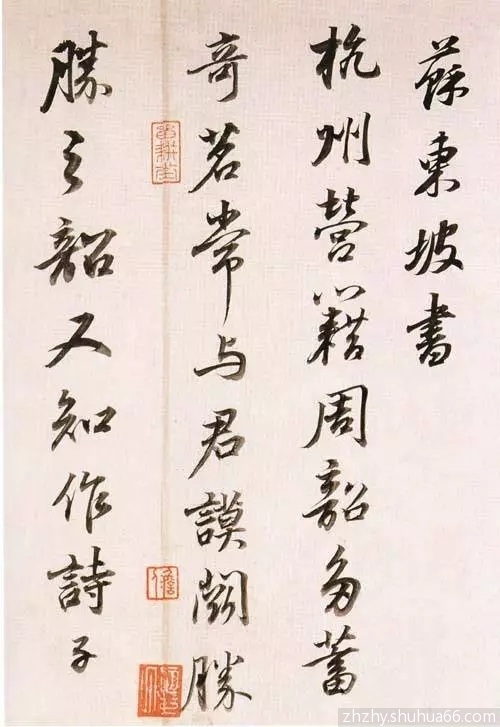 蘇東坡書
杭州營籍周韶多蓄
奇茗常与君謨闘勝
勝之韶又知作詩子
zhzhyshuhua66.com